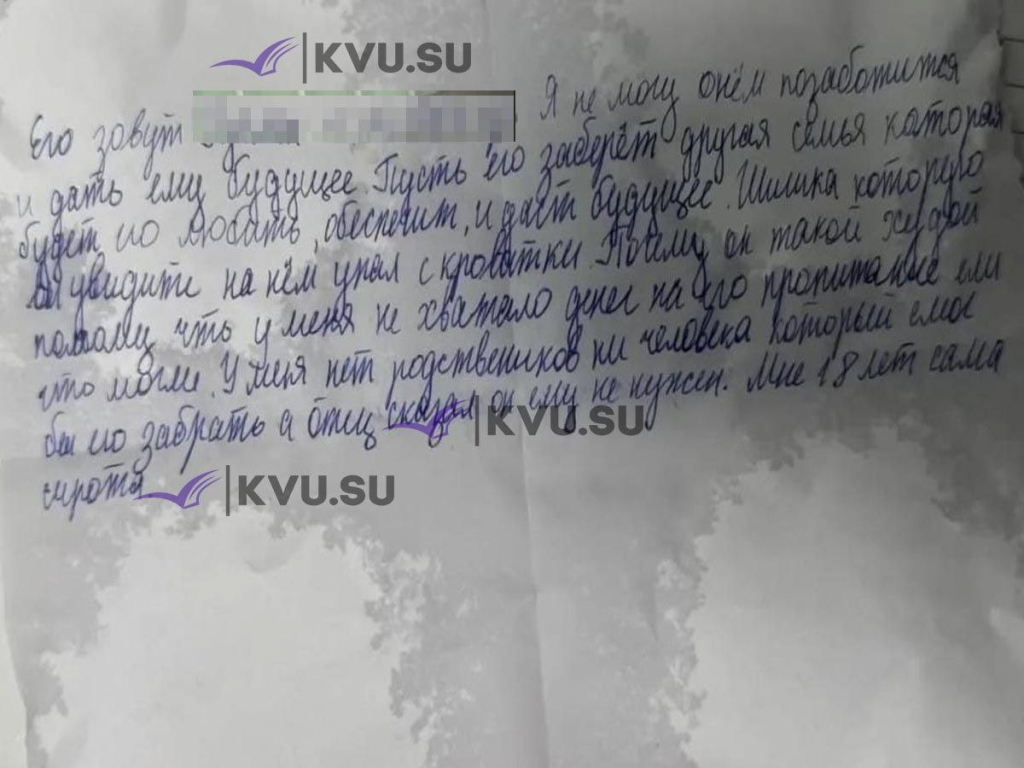 KVU.SU
Его зовут Я не могу онём позаботится
и дать ему будущее. Пусть его заберёт другая семья каторая
будет ио любить, обеспечит, и даст будущее. Шишка которую
вы увидите на нём упал с кроватки. Почему он такой худой
потому что у меня не хватало денег на его пропитание ели
что могли. У меня нет родствеников ни человека который смог
бы ио забрать а отец сказал он ему не нужен. Мне 18 лет сама
KVU.SU
сирота
KVU.SU